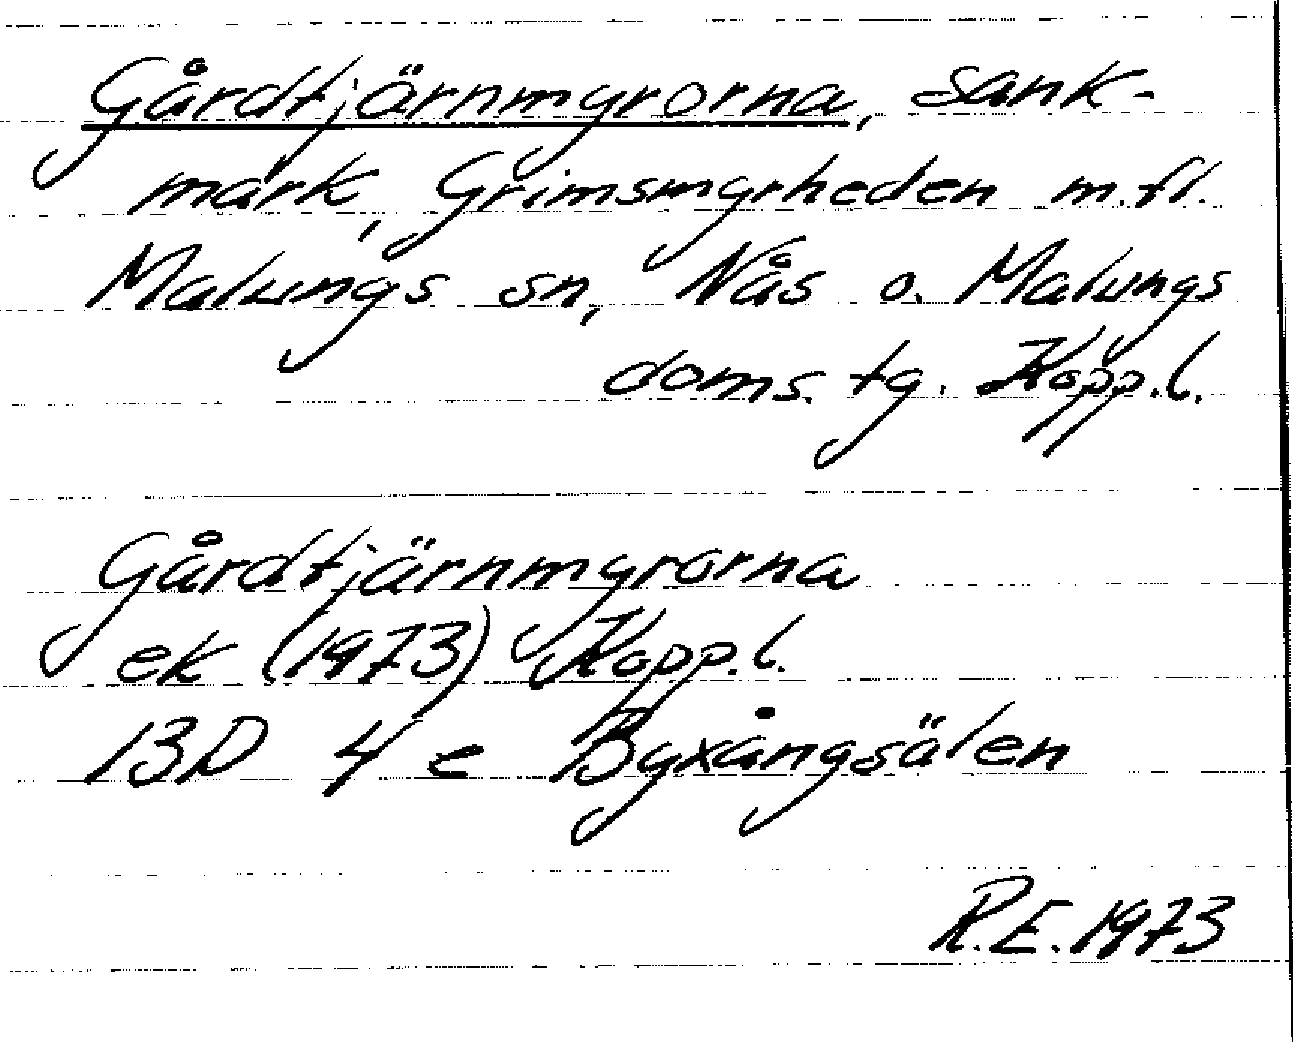 Gårdtjärnmyrorna, sank-
mark, Grimsmyrheden m.fl.
Malungs sn, Nås o. Malungs
doms. tg. Kopp.l.
Gårdtjärnmyrorna
ek (1973) Kopp.l.
13D 4 e Byxångsälen
R.E. 1973